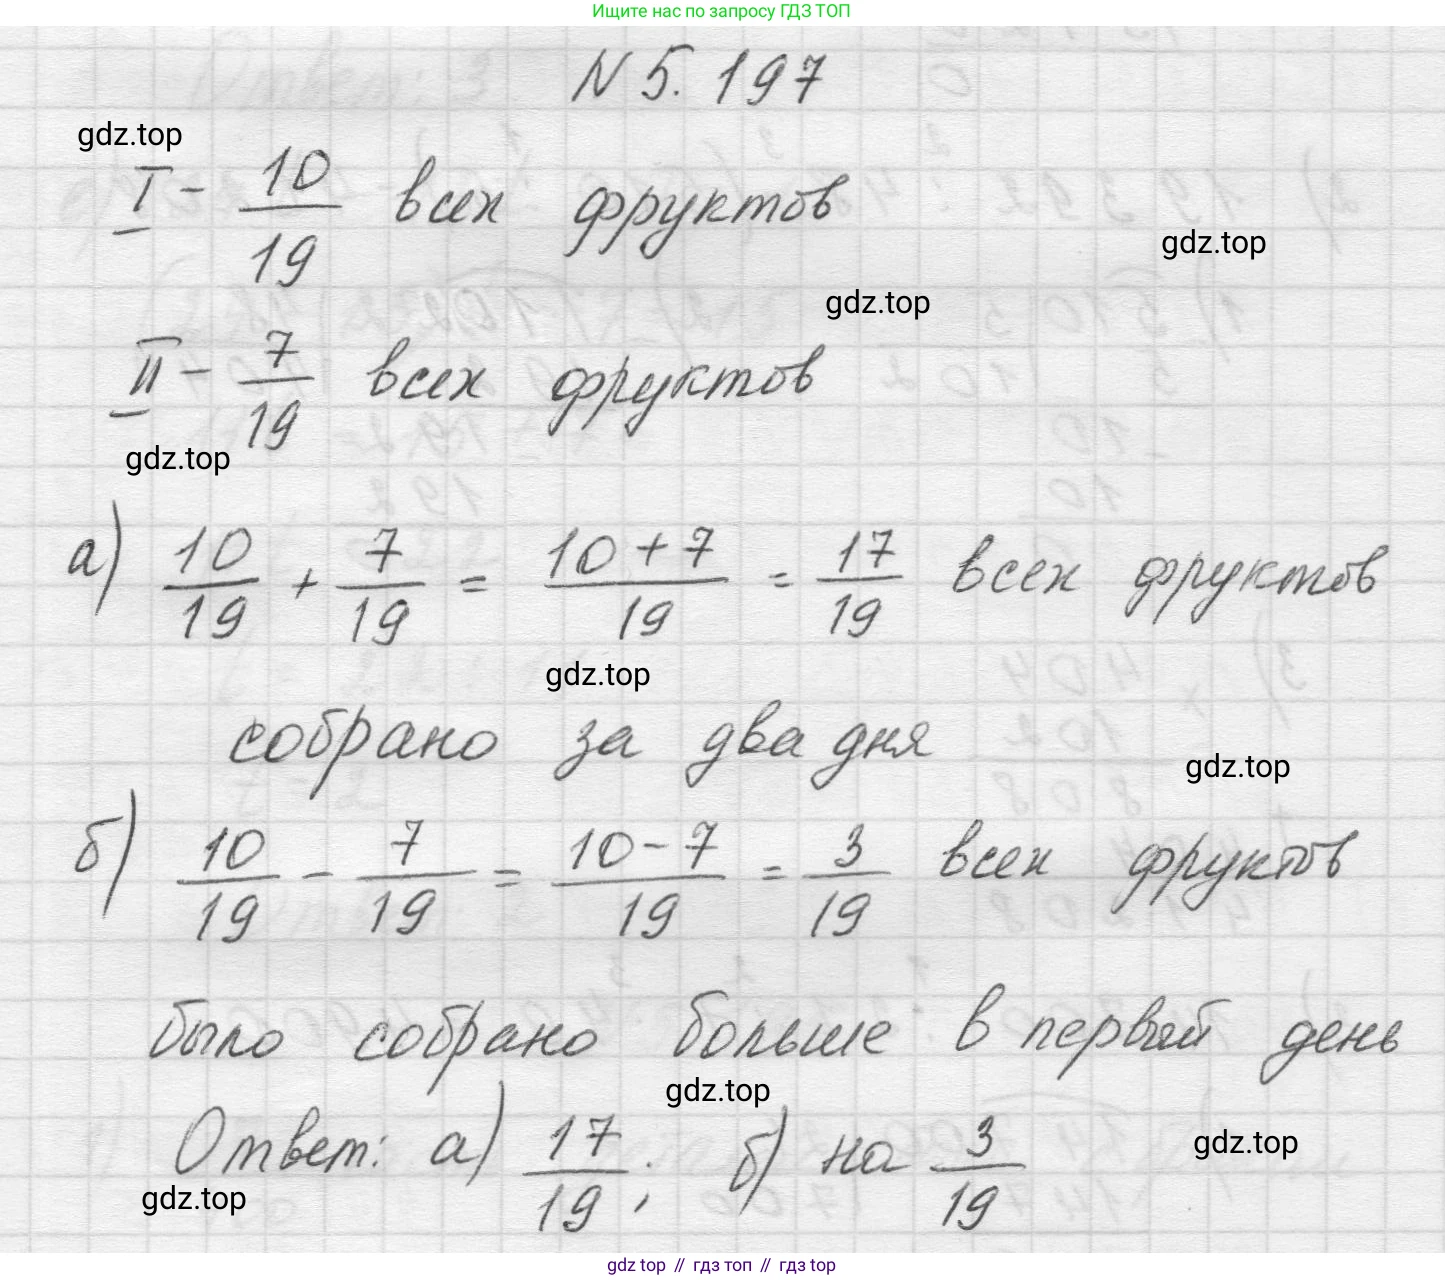 Ищите нас по запросу ГДЗ ТОП
N 5. 197
gdz.top
I - 10/19 всех фруктов
gdz.top
gdz.top
II - 7/19 всех фруктов
gdz.top
а) 10/19 + 7/19 = 10+7/19 = 17/19 всех фруктов
gdz.top
собрано за два дня
gdz.top
б) 10/19 - 7/19 = 10-7/19 = 3/19 всех фруктов
было собрано больше в первый день
gdz.top
Ответ: а) 17/19; б) на 3/19
gdz.top
gdz.top
gdz top // гдз топ // гдз top